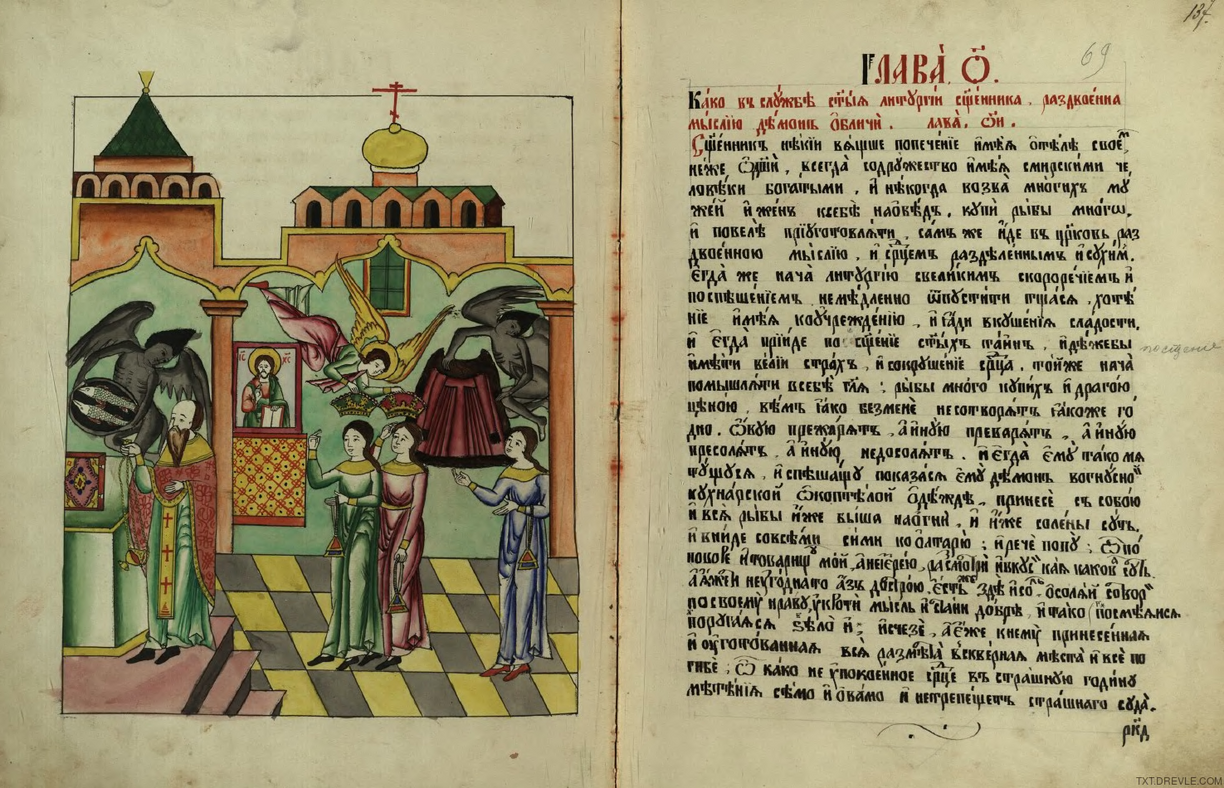 ІС ХС
137
69
Глава̀ Ѻ҃.
Ка́ко въ слу́жбѣ ст҃ы́ѧ литургі́и сщ҃е́нника. раздвое́нна
мы́слїю де́монъ ѡ҆бличѝ. лава̀. о҃и.
Сщ҃е́нникъ нѣ́кїи вѧ́щше попече́нїе имѣ́ѧ ѡ҆ те́лѣ свое́мъ
не́же, всегда̀ содру́жество имѣ́ѧ смирски́ми че
ловѣ́ки богатыми, и҆ нѣ́когда возва̀ мно́гихъ му
же́й и҆ же́нъ ксебѣ̀ наѡбѣ́дъ, купѝ ры́бы мно́гѡ,
и҆ повелѣ̀ прїуготовлѧ́ти, са́мъ же и҆́де въ цр҃ковь раз
двое́нною мы́слїю, и҆ ср҃цемъ раздѣле́ннымъ и҆ сухи́м.
Е҆гда́ же нача̀ литургі́ю свели́кимъ скороре́чїемъ и҆
поспѣше́нїемъ, неме́дленно ѿпусти́ти тща́сѧ, хотѣ́
нїе и҆мѣ́ѧ коучрежде́нїю, и҆ ра́ди вкуше́нїѧ сла́дости,
и҆ е҆гда̀ прїи́де по сще́нїе ст҃ы́хъ та́инъ, и҆дѣ́жебы
посщенїе
и҆мѣ́ти ве́лїи стра́хъ, и҆ сокруше́нїе ср҃ца, то́йже нача̀
помышлѧ́ти всебѣ̀ та́ѧ: ры́бы мно́го купи́хъ и҆ драго́ю
цѣно́ю, вѣ́мъ ꙗ҆́ко безменѐ несотворѧ́тъ ꙗ҆́коже го́
дно. Ѻ҆́вую прежарѧ́тъ, а҆ и҆ну́ю преварѧ́тъ, а҆ и҆ну́ю
пресолѧ́тъ, а҆ и҆ну́ю, недосолѧ́тъ. и҆ е҆гда̀ є҆му̀ та́ко мѧ
ту́щусѧ, и҆ спѣша́щу показа́сѧ є҆му̀ де́монъ вогну́сной
кухна́рской ѡ҆копте́лой ѻ҆де́ждѣ, принесѐ съ собо́ю
и҆ всѧ̀ ры́бы и҆̀же вы́ша наогнѝ, и҆ и҆̀же соле́ны су́ть,
и҆ вни́де совсѣ́ми си́ми ко ѻ҆лтарю̀; и҆ речѐ попу̀: ѽ по́
поворе и҆ това́рищу мо́й, а҆ не і҆ере́ю, расмотрѝ и҆ вкусѝ како́в су́ть
неуго́дна то а҆́зъ досѣро́ю. є҆́сть же здѣ̀ и҆ со́ль ѡ҆солѧ́й
по своему̀ нра́ву, укротѝ мы́сль и҆ до́брѣ, и҆ та́ко посмѣ́ѧлсѧ
поруга́ѧсѧ ѕѣлѡ̀ и҆ и҆счезѐ, а҆ є҆́же кнему̀ принесе́ннаѧ
и҆ ѹ҆гото́ваннаѧ всѧ̀ разме́та вскве́рнаѧ мѣ́ста и҆ всѐ по
ги́бе; ѽ ка́ко не упоко́еное ср҃це въ стра́шную годи́ну
мѣте́нїѧ сѣ́мо и҆ ѻ҆ва́мо и҆ нетрепе́щетъ стра́шнаго суда̀.
рк҃д
TXT.DREVLE.COM